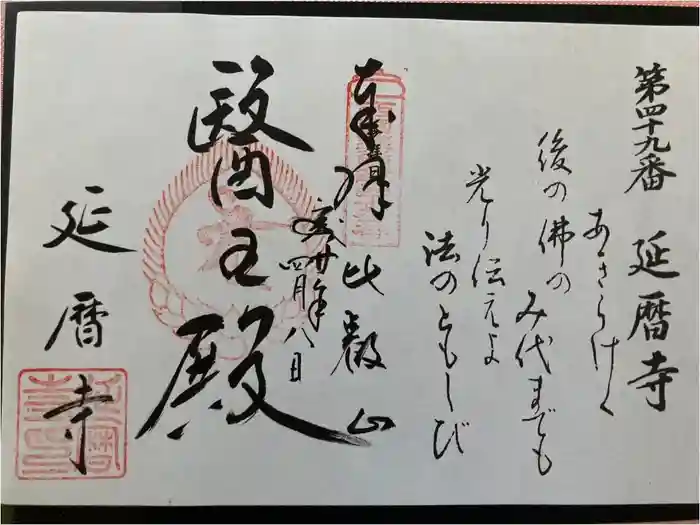 第四十九番 延暦寺
あきらけく
後の佛の
み代までも
光り伝えよ
法のともしび
奉拝 比叡山
四月八日
醫王殿
延暦寺